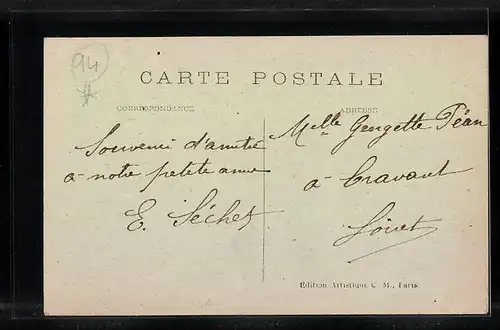 94
CARTE POSTALE
CORRESPONDANCE
ADRESSE
Souvenir d'amitié
à notre petite amie
E. Séchet
Melle Georgette Péan
à Cravant
Loiret
Edition Artistique C. M., Paris.